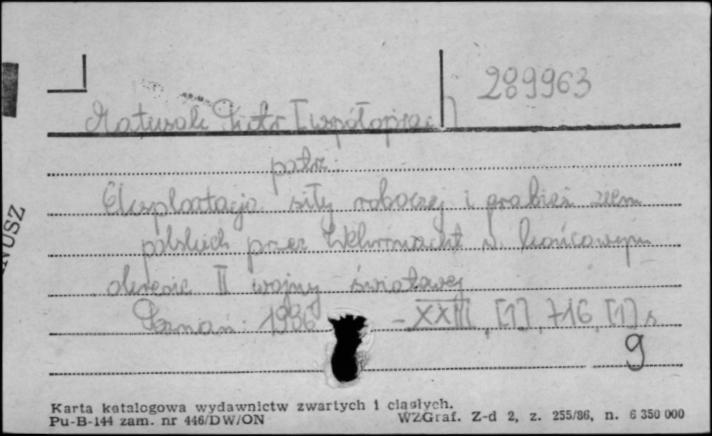 289963
Matusak Piotr [współoprac.]
patr.
Eksploatacja siły roboczej i grabież ziem
polskich przez Wehrmacht w końcowym
okresie II wojny światowej
Poznań 1986 - XXIII, [1], 716, [1] s
9
NUSZ
Karta katalogowa wydawnictw zwartych i ciągłych.
Pu-B-144 zam. nr 446/DW/ON WZGraf. Z-d 2, z. 255/86, n. 6 350 000